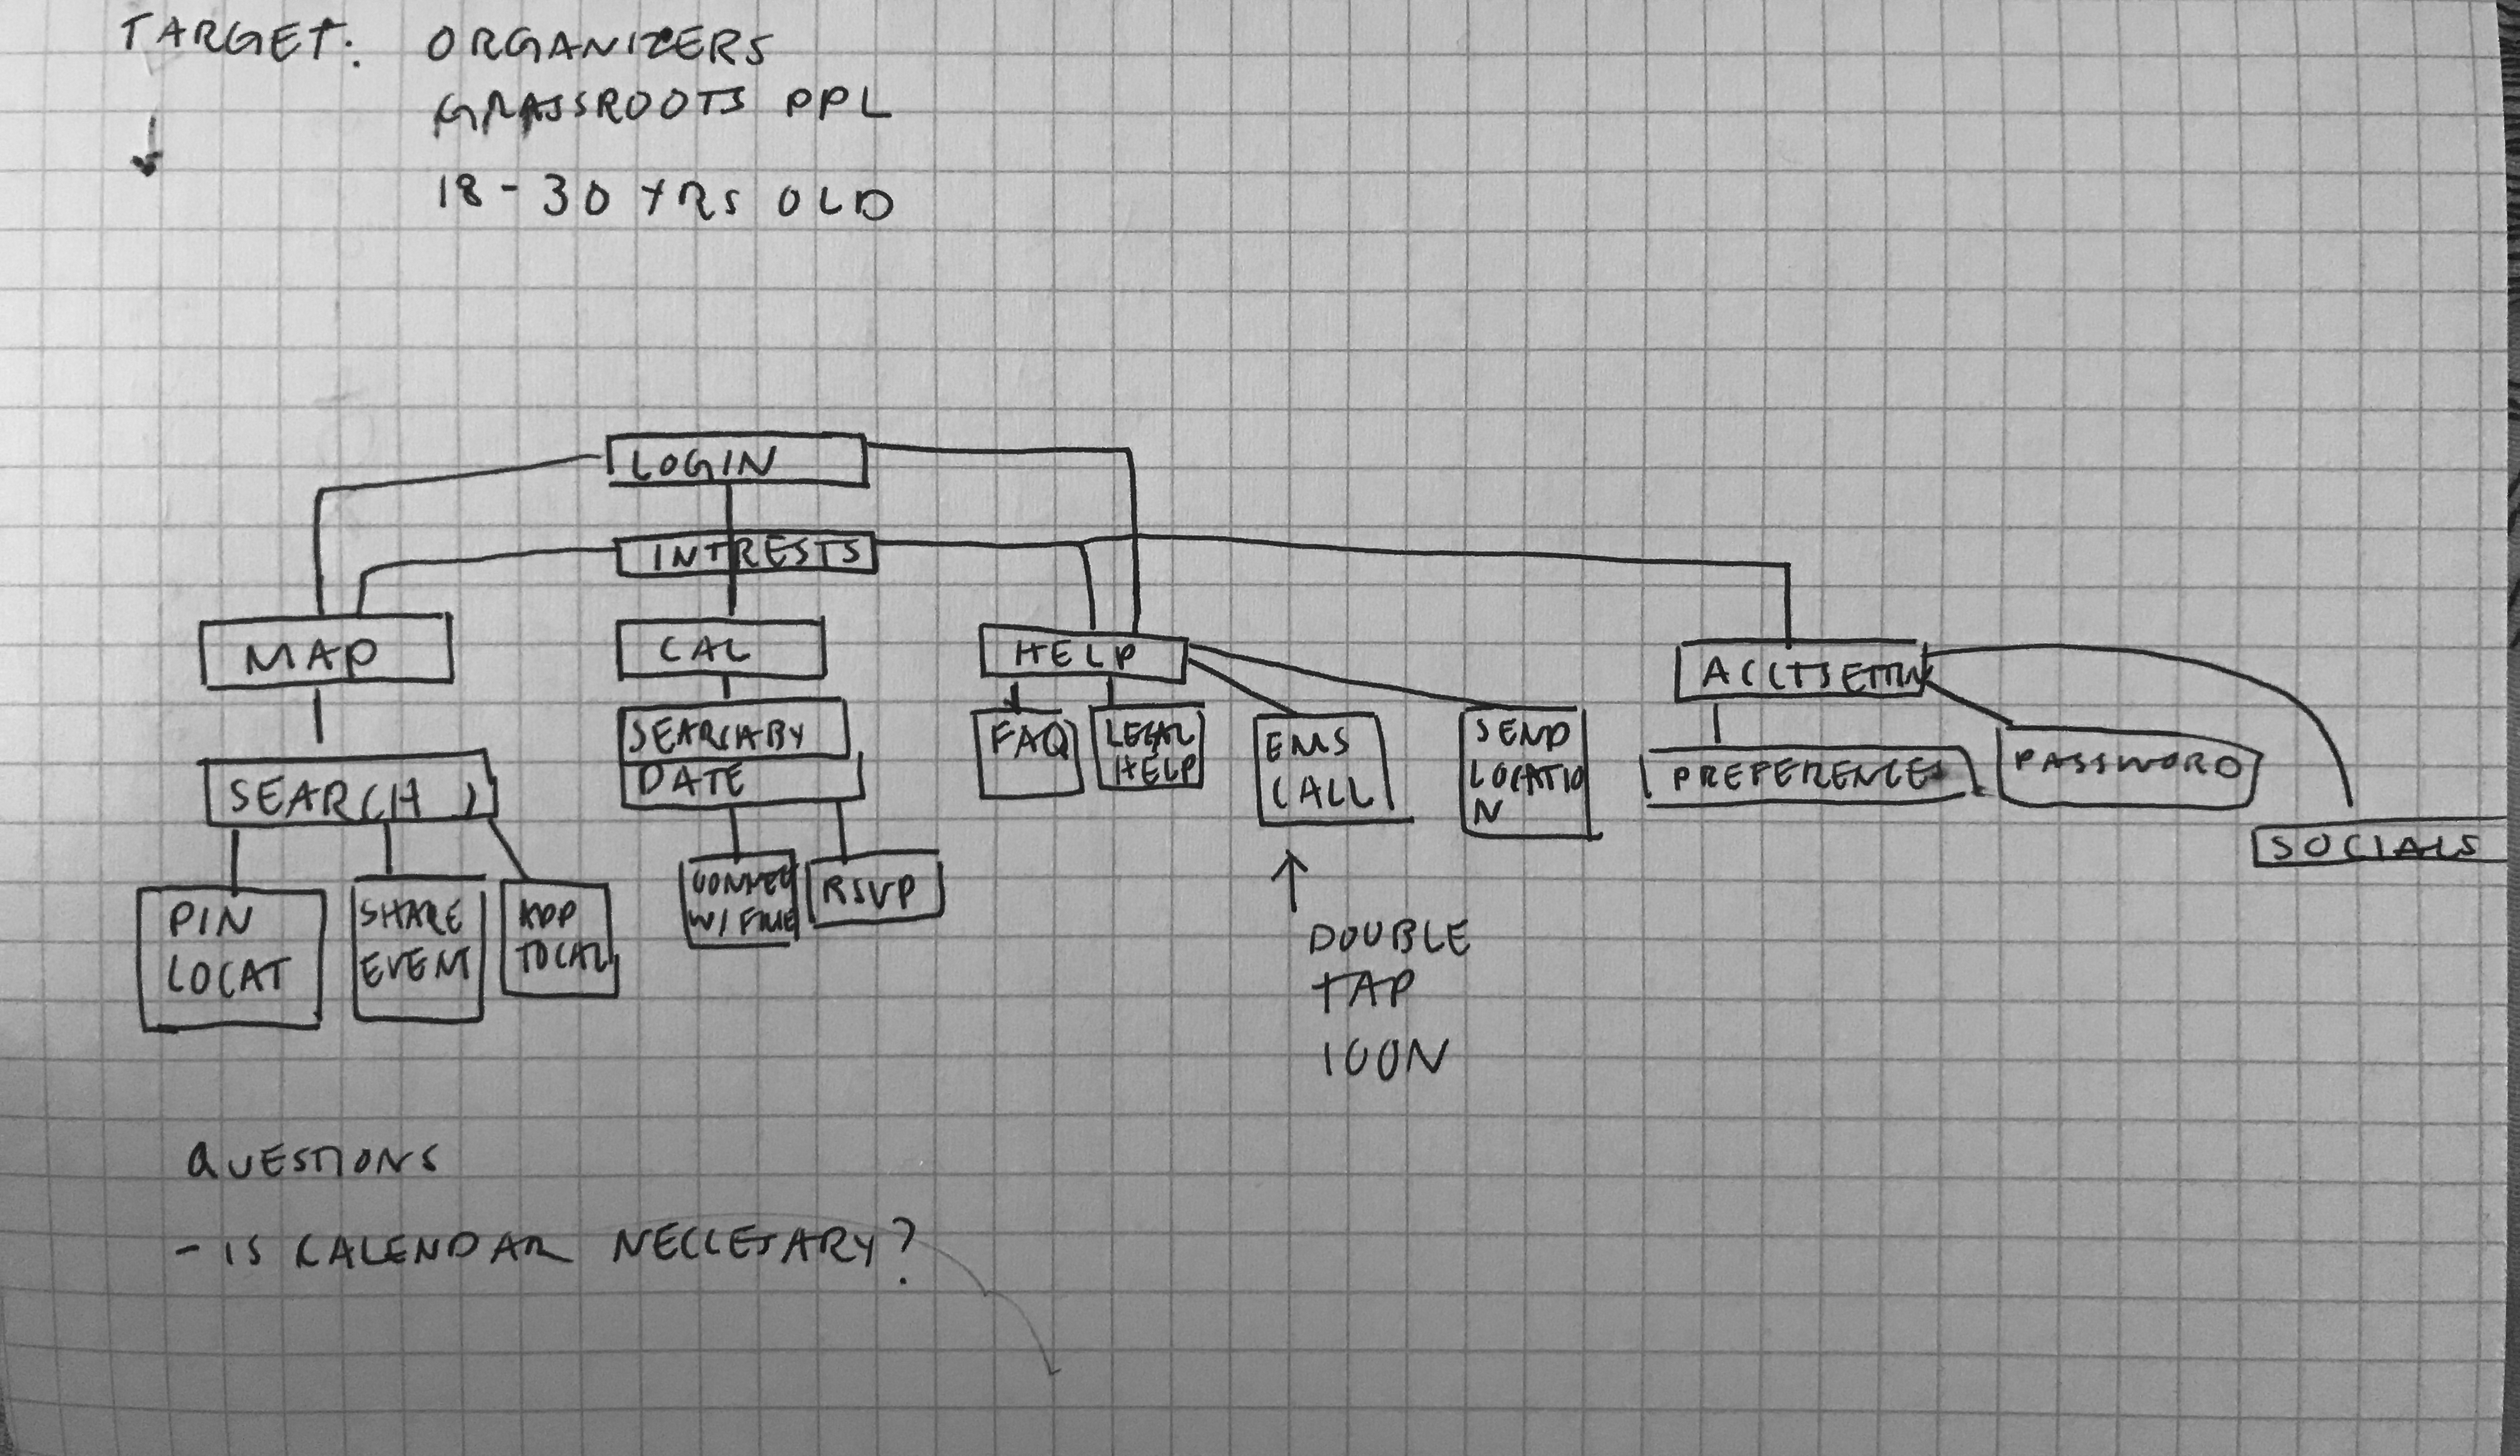 TARGET: ORGANIZERS
GRASSROOTS PPL
18-30 YRS OLD
LOGIN
INTRESTS
MAP
CAL
HELP
ACCTSETTIN
SEARCH
SEARCHBY
DATE
FAQ
LEGAL
HELP
EMS
CALL
SEND
LOCATIO
N
PREFERENCES
PASSWORD
SOCIALS
PIN
LOCAT
SHARE
EVENT
ADD
TOCAL
CONNEC
W/ FRIE
RSVP
DOUBLE
TAP
ICON
QUESTIONS
- IS CALENDAR NECCESARY?